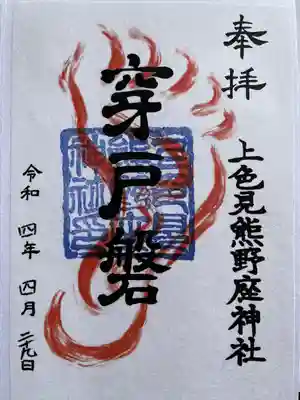 奉拝
上色見熊野座神社
穿戸磐
令和四年四月二十九日